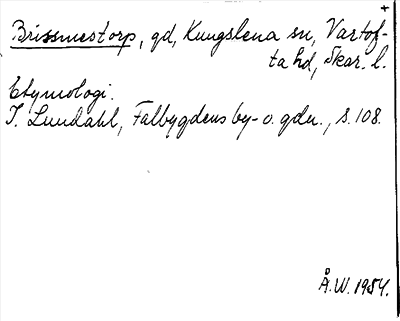 +
Brismestorp, gd, Kungslena sn, Vartof-
ta hd, Skar. l.
Etymologi.
I. Lundahl, Falbygdens by- o. gdn., s. 108.
Å.W. 1954.